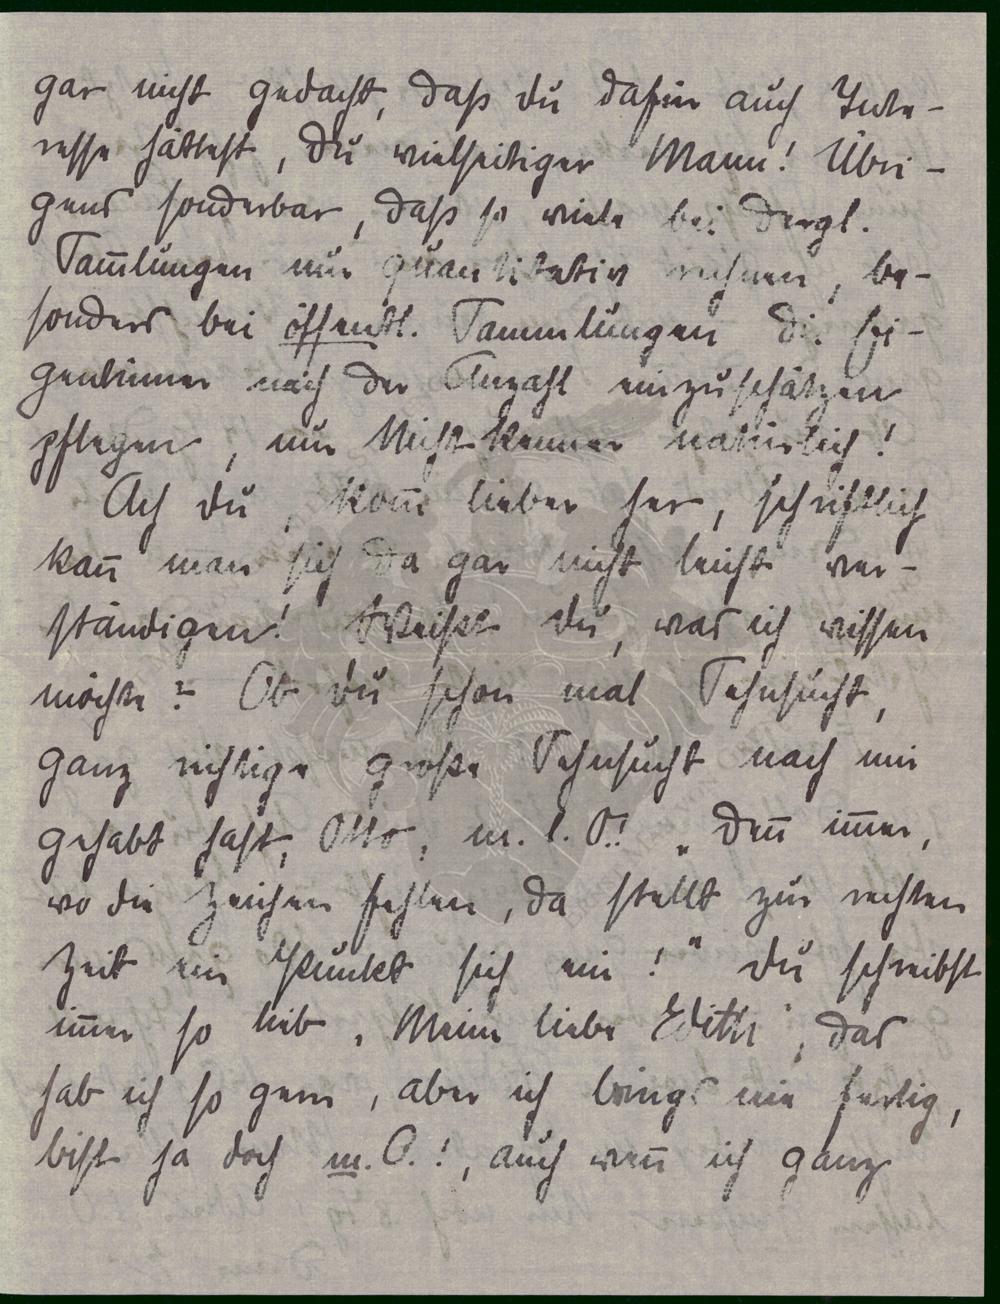 gar nicht gedacht, daß du dafür auch Inte-
resse hättest, du vielseitiger Mann! Übri-
gens sonderbar, daß so viele bei dergl.
Sam̅lungen nur quantitativ rechnen, be-
sonders bei öffentl. Sammlungen die Ei-
gentümer nach der Anzahl einzuschätzen
pflegen, nur Nichtkenner natürlich!
Ach du, kom̅e lieber her, schriftlich
kan̅ man sich da gar nicht leicht ver-
ständigen! Weißt du, was ich wissen
möchte? Ob du schon mal Sehnsucht,
ganz richtige große Sehnsucht nach mir
gehabt hast, Otto, m. l. O.! „Den̅ im̅er,
wo die Zeichen fehlen, da stellt zur rechten
Zeit ein Punkt sich ein!" Du schreibst
im̅er so lieb, „Meine liebe Edith", das
hab ich so gern, aber ich brings nie fertig,
bist ja doch m. O.!, auch wen̅ ich ganz